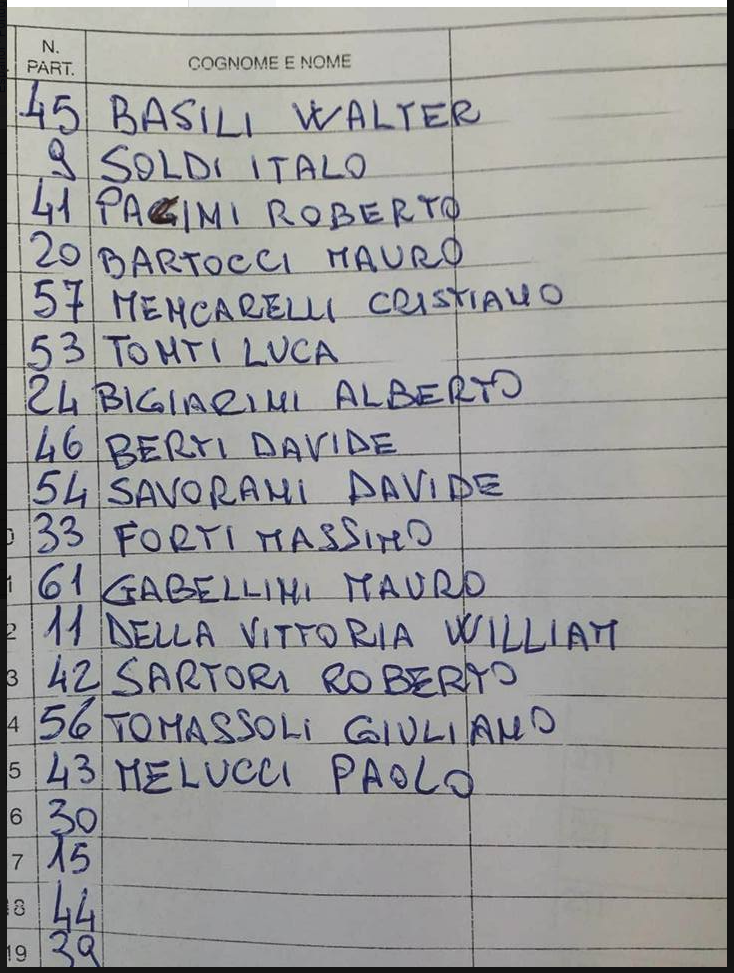 N. PART. COGNOME E NOME
45 BASILI WALTER
9 SOLDI ITALO
41 PAGINI ROBERTO
20 BARTOCCI MAURO
57 MENCARELLI CRISTIANO
53 TONTI LUCA
24 BIGIARINI ALBERTO
46 BERTI DAVIDE
54 SAVORANI DAVIDE
33 FORTI MASSIMO
61 GABELLINI MAURO
2 11 DELLA VITTORIA WILLIAM
3 42 SARTORI ROBERTO
4 56 TOMASSOLI GIULIANO
5 43 MELUCCI PAOLO
6 30
7 15
18 44
19 39